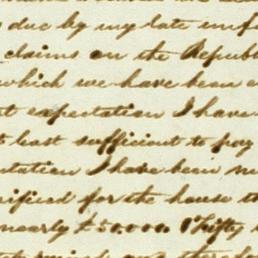 due by my late
claims on the Republ
which we have been
expectation I have
least sufficient to pay
tation I have been
rified for the house th
nearly $50.000. (Fifty